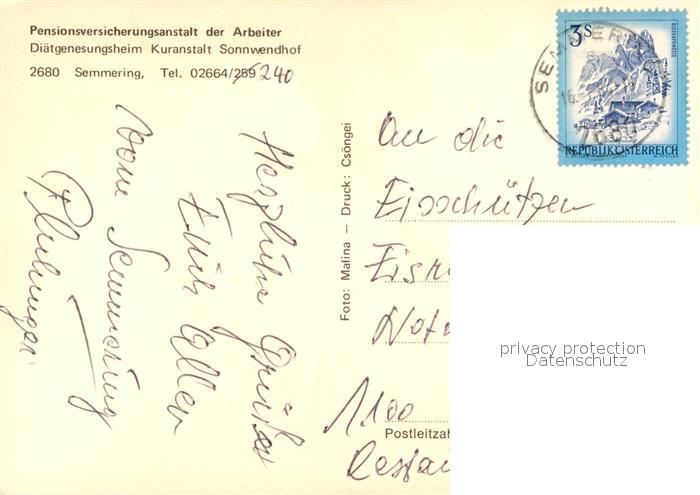 Pensionsversicherungsanstalt der Arbeiter
Diätgenesungsheim Kuranstalt Sonnwendhof
2680 Semmering, Tel. 02664/259 240
Herzliche Grüße
Euch Allen
vom Semmering
Foto: Malina – Druck: Csöngei
3 S
REPUBLIK ÖSTERREICH
SEMMERING
An die
Eisschützen
1100
Postleitzah
privacy protection
Datenschutz